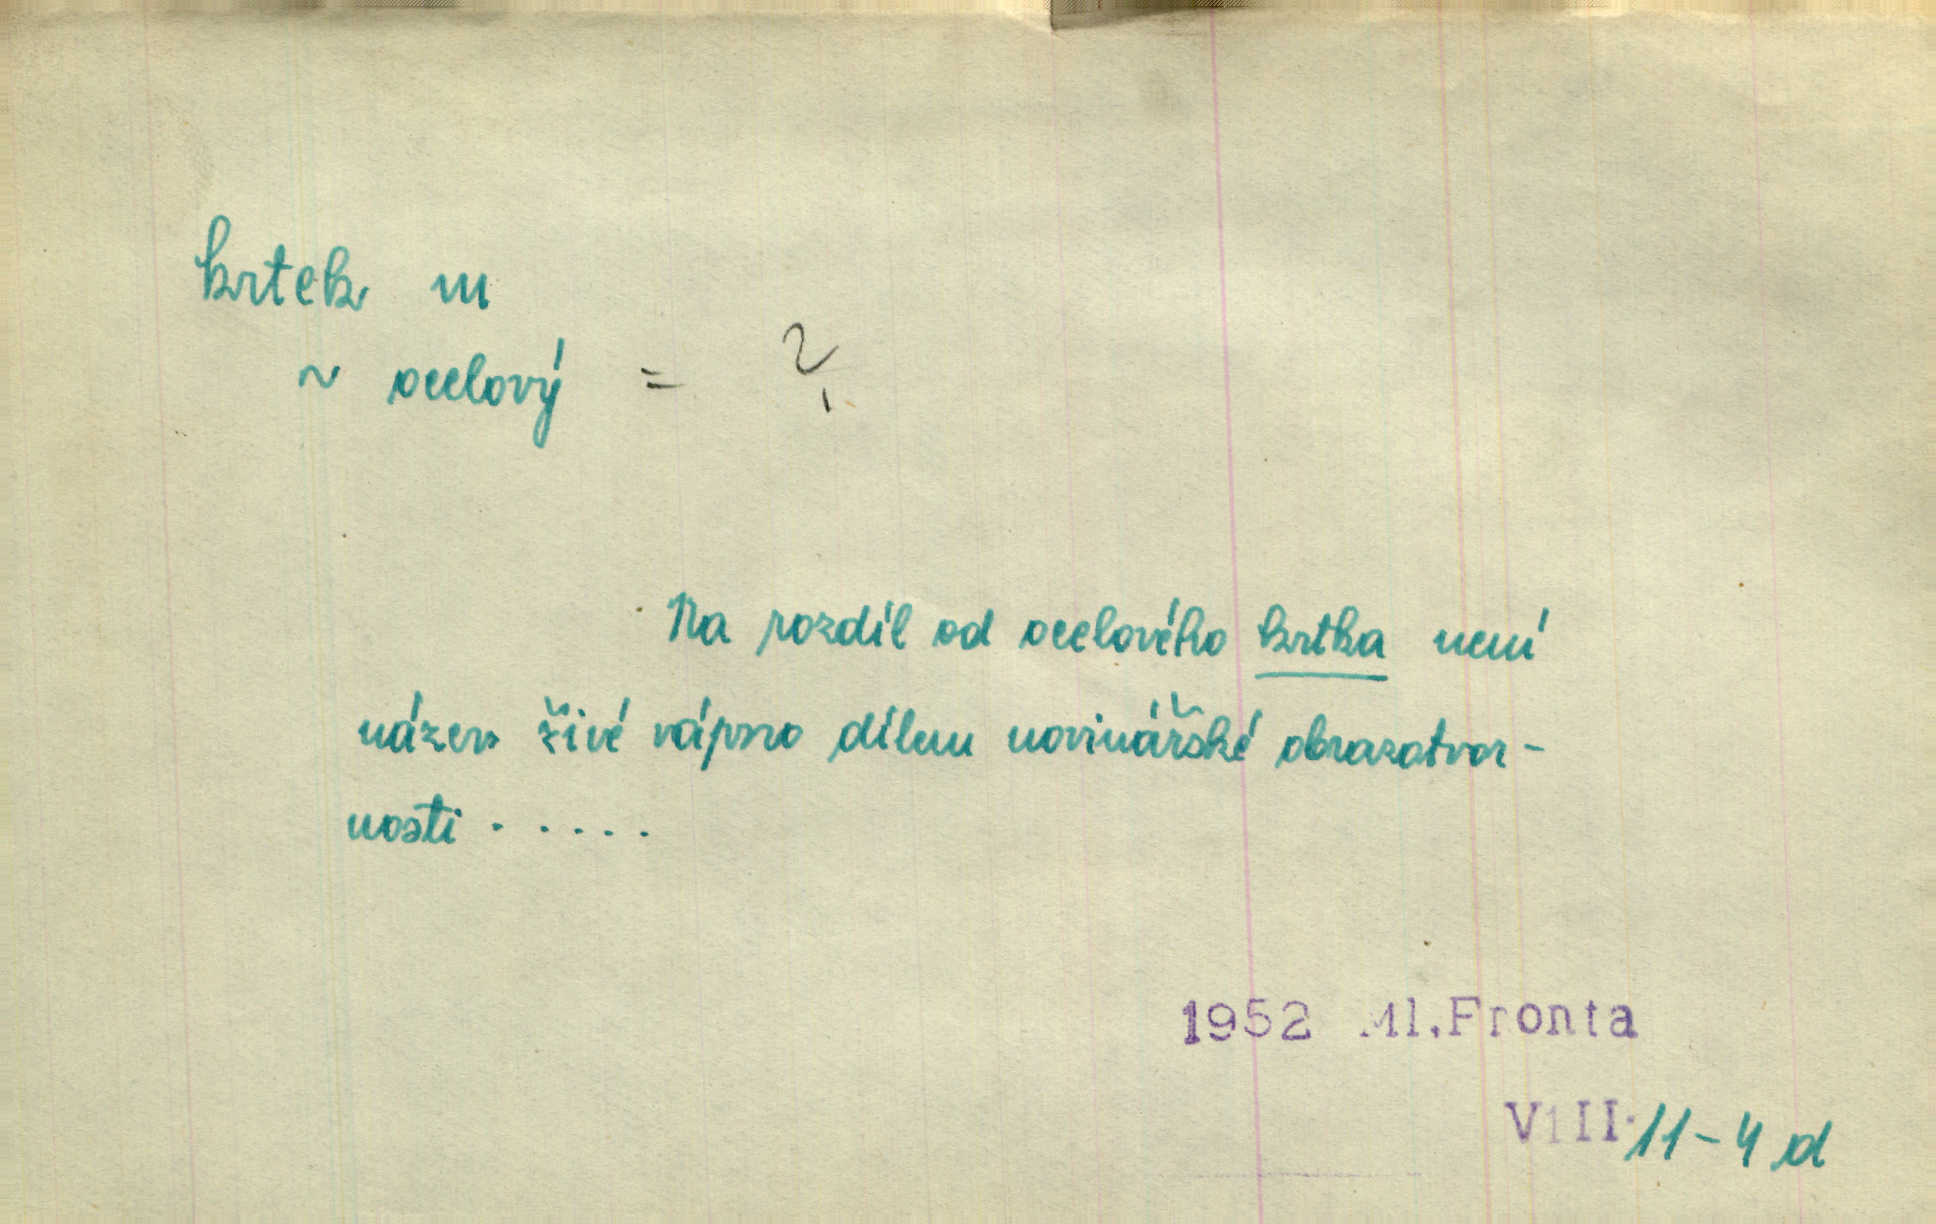 krtek m
~ ocelový = ?
Na rozdíl od ocelového krtka není
název živé vápno dílem novinářské obrazotvor-
nosti . . . . .
1952 Ml.Fronta
VIII. 11-4 d